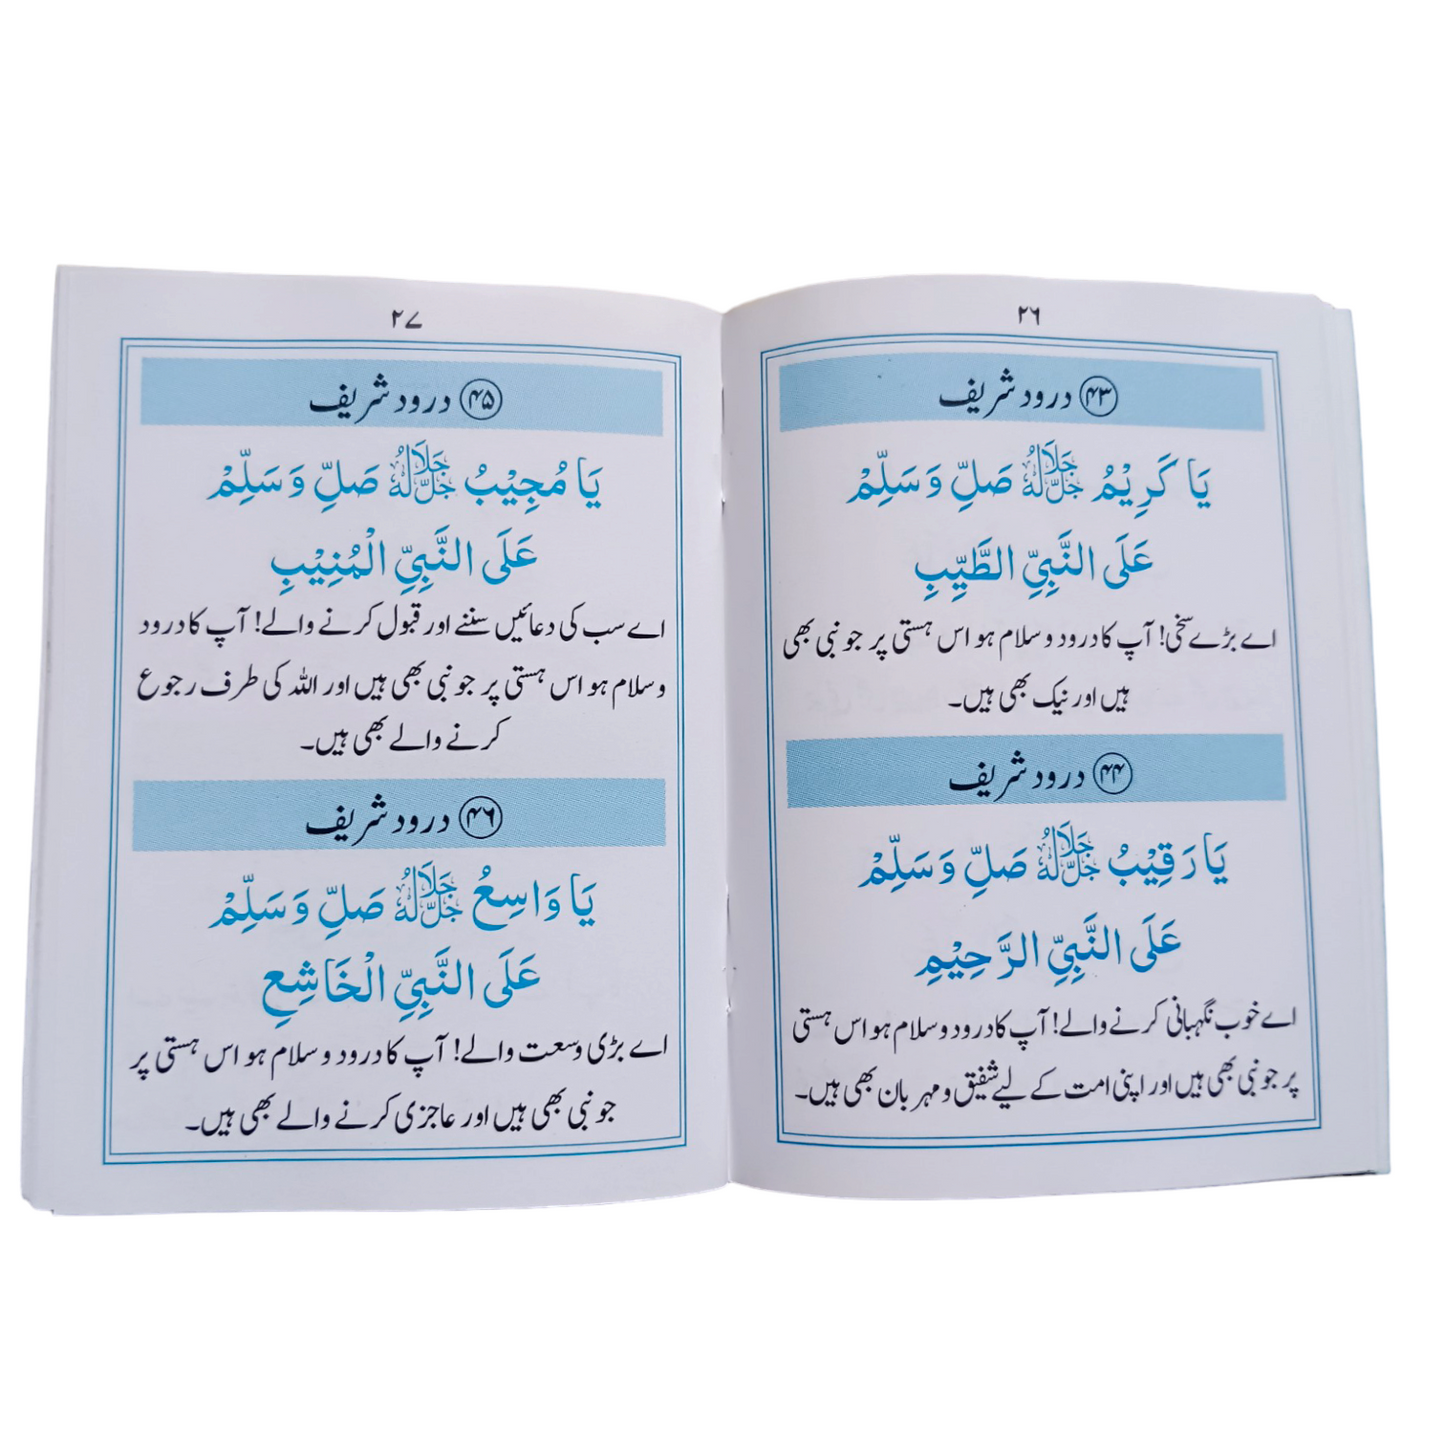 ۲۶
۴۳ درود شریف
يَا كَرِيْمُ جَلَّ جَلَالُهُ صَلِّ وَسَلِّمْ
عَلَى النَّبِيِّ الطَّيِّبِ
اے بڑے سخی! آپ کا درود و سلام ہو اس ہستی پر جو نبی بھی
ہیں اور نیک بھی ہیں۔
۴۴ درود شریف
يَا رَقِيْبُ جَلَّ جَلَالُهُ صَلِّ وَسَلِّمْ
عَلَى النَّبِيِّ الرَّحِيْمِ
اے خوب نگہبانی کرنے والے! آپ کا درود و سلام ہو اس ہستی
پر جو نبی بھی ہیں اور اپنی امت کے لیے شفیق و مہربان بھی ہیں۔
۲۷
۴۵ درود شریف
يَا مُجِيْبُ جَلَّ جَلَالُهُ صَلِّ وَسَلِّمْ
عَلَى النَّبِيِّ الْمُنِيْبِ
اے سب کی دعائیں سننے اور قبول کرنے والے! آپ کا درود
و سلام ہو اس ہستی پر جو نبی بھی ہیں اور اللہ کی طرف رجوع
کرنے والے بھی ہیں۔
۴۶ درود شریف
يَا وَاسِعُ جَلَّ جَلَالُهُ صَلِّ وَسَلِّمْ
عَلَى النَّبِيِّ الْخَاشِعِ
اے بڑی وسعت والے! آپ کا درود و سلام ہو اس ہستی پر
جو نبی بھی ہیں اور عاجزی کرنے والے بھی ہیں۔